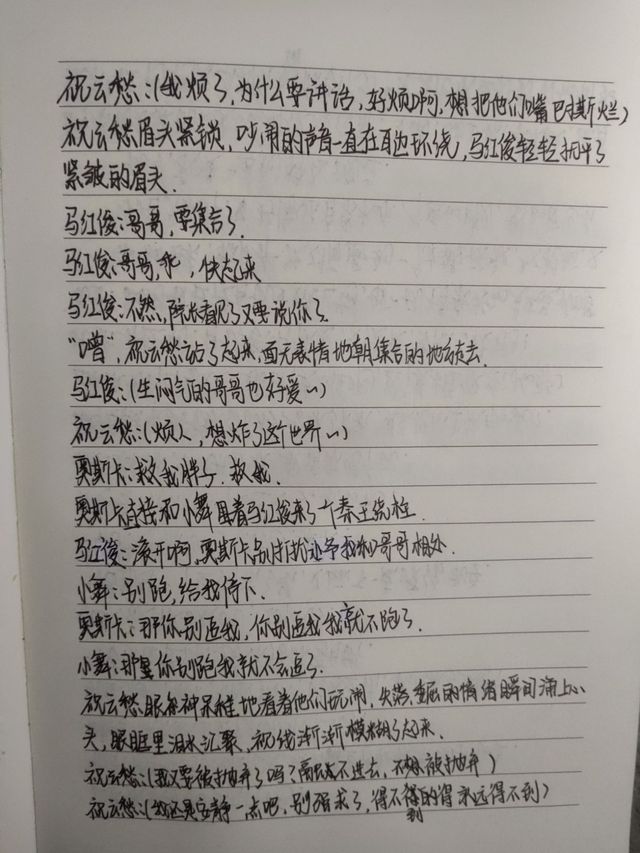 祝云愁：（我烦了，为什么要讲话，好烦啊，想把他们嘴巴撕烂）
祝云愁眉头紧锁，吵闹的声音一直在耳边环绕，马红俊轻轻抚平了
紧皱的眉头．
马红俊：哥哥，要集合了．
马红俊：哥哥，乖，快起来
马红俊：不然，院长看见了又要说你了．
“噌”，祝云愁站了起来，面无表情地朝集合的地方走去．
马红俊：（生闷气的哥哥也好爱~）
祝云愁：（烦人，想炸了这个世界~）
奥斯卡：救我胖子．救我．
奥斯卡直接和小舞围着马红俊来了个秦王绕柱．
马红俊：滚开啊，奥斯卡别打扰爷我和哥哥相处．
小舞：别跑，给我停下．
奥斯卡：那你别追我，你别追我我就不跑了．
小舞：那里你别跑我就不会追了．
祝云愁眼神呆滞地看着他们玩闹，失落，委屈的情绪瞬间涌上心
头，眼眶里泪水汇聚，视线渐渐模糊了起来．
祝云愁：（我又要被抛弃了吗？融不进去，不想被抛弃）
祝云愁：（我还是安静一点吧，别强求了，得不到的得永远得不到）